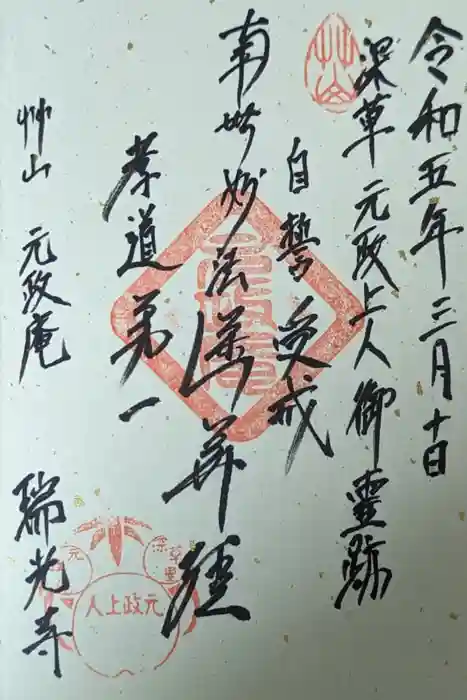 令和五年三月十日
深草元政上人御霊跡
自誓受戒
南無妙法蓮華経
孝道第一
艸山 元政庵
瑞光寺
艸山
深草里
元
元政上人